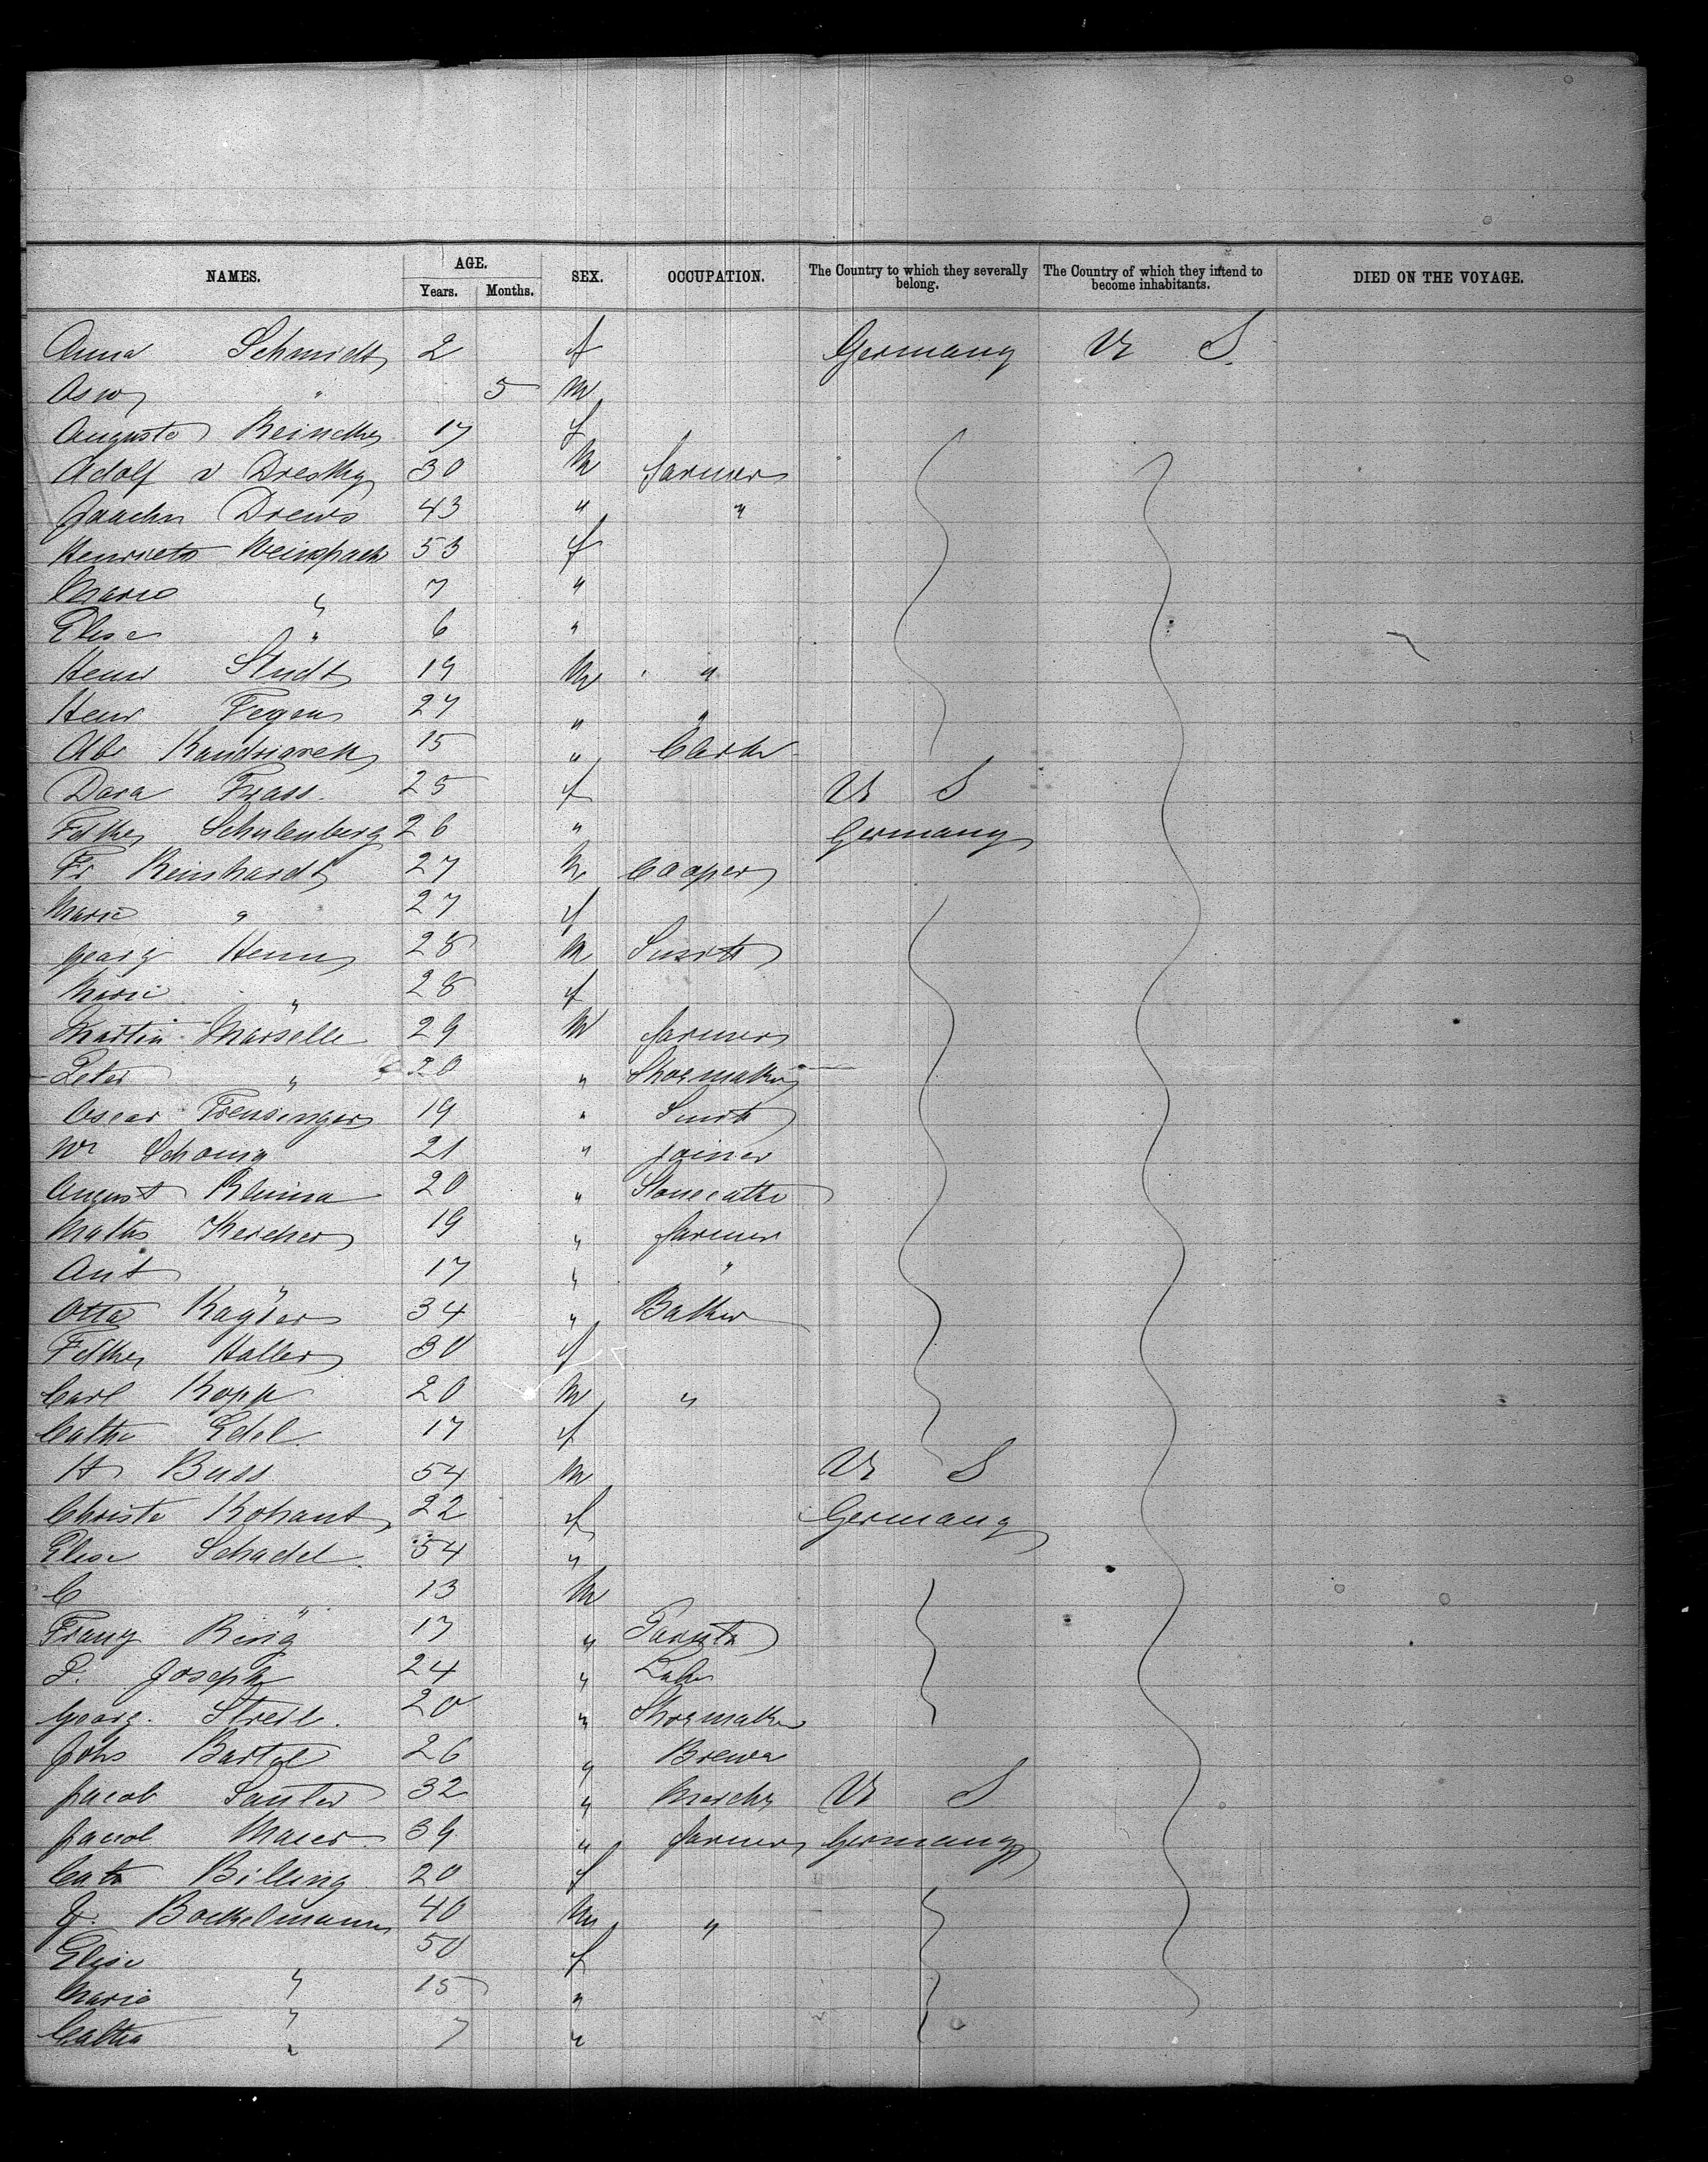 NAMES. AGE. SEX. OCCUPATION. The Country to which they severally belong. The Country of which they intend to become inhabitants. DIED ON THE VOYAGE.
Years. Months.
Anna Schmidt 2 f Germany U S
" 5 m
Auguste Reincke 17 f
Adolf v Dresky 30 m farmer
Joachn Drews 43 " "
Henriette Weinspach 53 f
Marie " 7 "
Elise " 6 "
Henr Studt 19 m "
Henr Fegen 27 " "
Abr 15 " Clerk
Dora Frass. 25 f U S
Schulenberg 26 " Germany
Fr Reinhardt 27 m Cooper
Marie " 27 f
Georg Henn 28 m Smith
Marie " 28 f
Martin Marselle 29 m farmer
Peter " 20 " Shoemaker
Oscar 19 " Smith
Wm Schonig 21 " joiner
August 20 " Stonecutter
Maths Kercher 19 " farmer
Ant " 17 " "
Otto Kayser 34 " Baker
Haller 30 f
Carl Kopp 20 m "
Cathe Edel 17 f
H Buss 54 m U S
Christe Kohaut 22 f Germany
Elise Schadel. 54 "
C " 13 m
Franz Ring 17 "
P. Joseph 24 "
Georg. Streil. 20 " Shoemaker
Johs Bartel 26 " Brewer
Jacob Sauter 32 " Merch U S
Jacob Maier 39 " farmer Germany
Cath Billing 20 f
J. Boekelmann 40 m "
Elise " 50 f
Marie " 15 "
Catha " 7 "